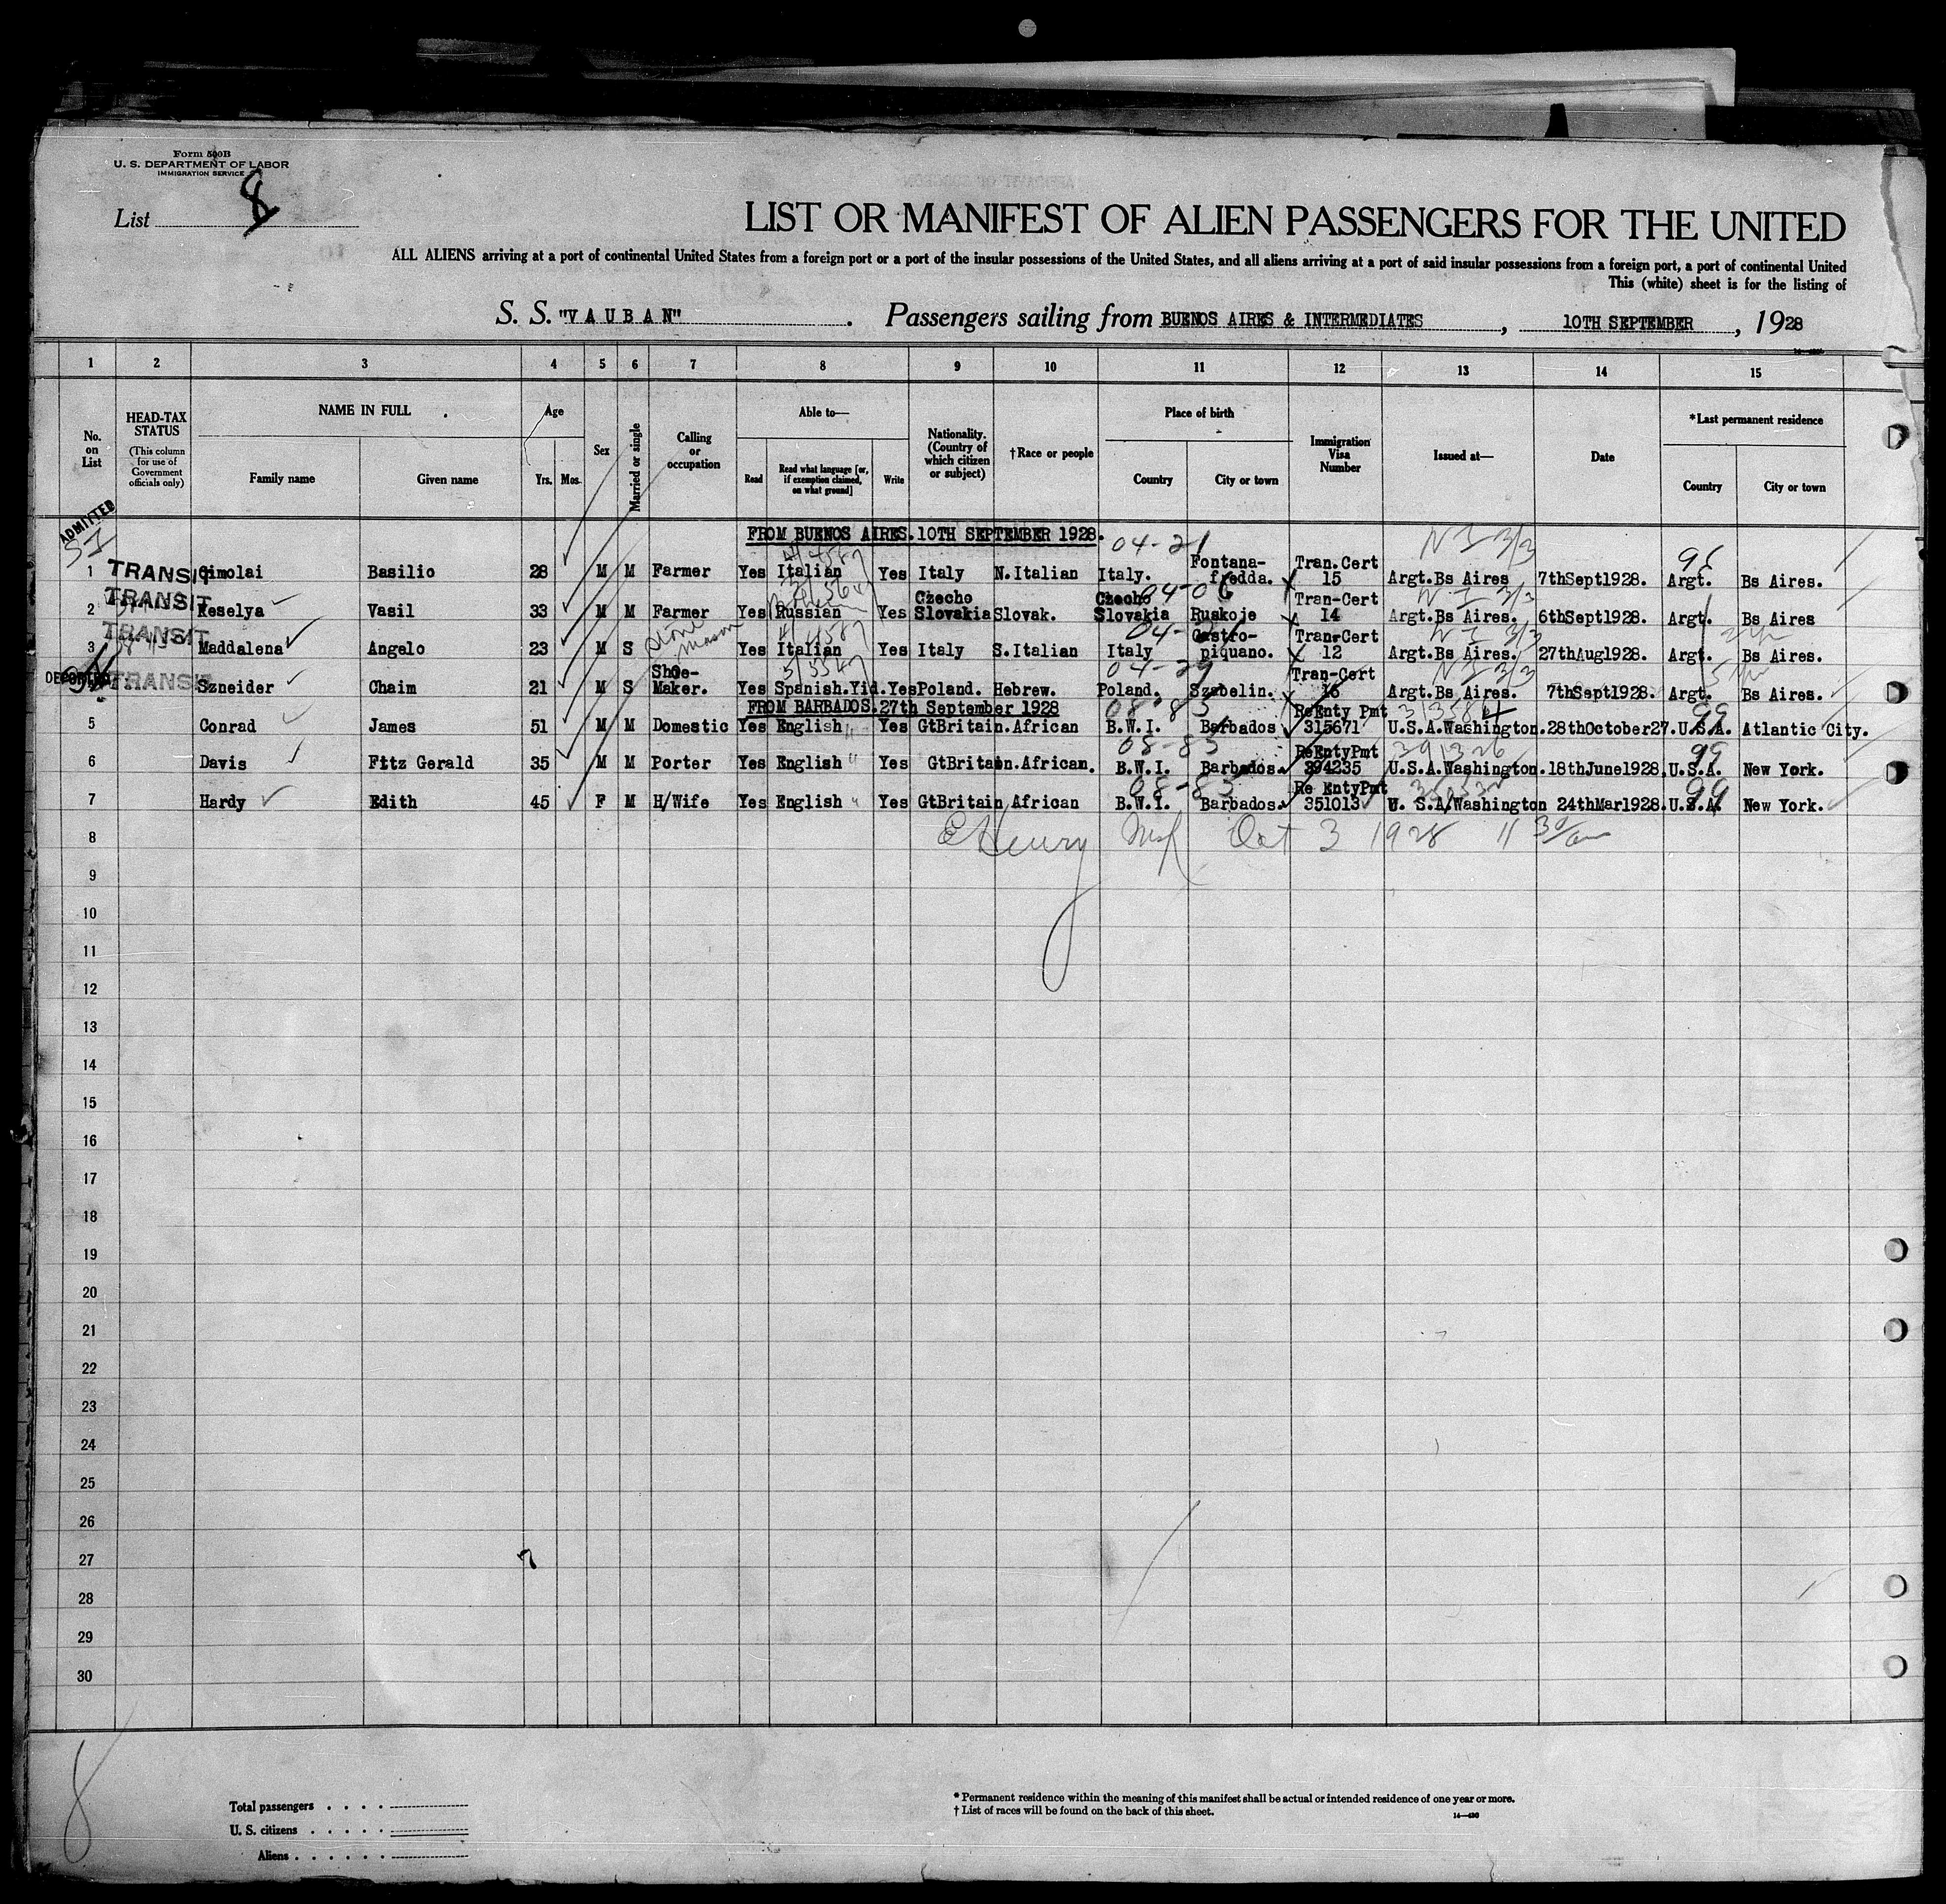 Form 500B
U. S. DEPARTMENT OF LABOR
IMMIGRATION SERVICE
List 8
LIST OR MANIFEST OF ALIEN PASSENGERS FOR THE UNITED
ALL ALIENS arriving at a port of continental United States from a foreign port or a port of the insular possessions of the United States, and all aliens arriving at a port of said insular possessions from a foreign port, a port of continental United
This (white) sheet is for the listing of
S. S. "VAUBAN". Passengers sailing from BUENOS AIRES & INTERMEDIATES, 10TH SEPTEMBER, 1928
1 2 3 4 5 6 7 8 9 10 11 12 13 14 15
No. on List
HEAD-TAX STATUS (This column for use of Government officials only)
NAME IN FULL Family name Given name
Age Yrs. Mos.
Sex
Married or single
Calling or occupation
Able to— Read Read what language [or, if exemption claimed, on what ground] Write
Nationality. (Country of which citizen or subject)
†Race or people
Place of birth Country City or town
Immigration Visa Number
Issued at—
Date
*Last permanent residence Country City or town
ADMITTED
SI
FROM BUENOS AIRES.10TH SEPTEMBER 1928.
04-21 NI 3/3
1 TRANSIT Cimolai Basilio 28 M M Farmer Yes Italian Yes Italy N.Italian Italy. Fontana-fredda. Tran.Cert 15 Argt.Bs Aires 7thSept1928. Argt. Bs Aires.
2 TRANSIT Keselya Vasil 33 M M Farmer Yes Russian Yes Czecho Slovakia Slovak. Czecho Slovakia Ruskoje Tran-Cert 14 Argt.Bs Aires. 6thSept1928. Argt. Bs Aires
3 TRANSIT Maddalena Angelo 23 M S Stone Mason Yes Italian Yes Italy S.Italian Italy Castro-piquano. Tran-Cert 12 Argt.Bs Aires. 27thAug1928. Argt. Bs Aires.
DEPORTED TRANSIT Szneider Chaim 21 M S Shoe-Maker. Yes Spanish.Yid. Yes Poland. Hebrew. Poland. Szabelin. Tran-Cert 16 Argt.Bs Aires. 7thSept1928. Argt. Bs Aires.
FROM BARBADOS.27th September 1928
5 Conrad James 51 M M Domestic Yes English Yes GtBritain.African B.W.I. Barbados ReEnty Pmt 315671 U.S.A.Washington.28thOctober27.U.S.A. Atlantic City.
6 Davis Fitz Gerald 35 M M Porter Yes English Yes GtBritain.African. B.W.I. Barbados. ReEntyPmt 394235 U.S.A.Washington.18thJune1928.U.S.A. New York.
7 Hardy Edith 45 F M H/Wife Yes English Yes GtBritain African B.W.I. Barbados. Re EntyPmt 351013 U. S.A/Washington 24thMar1928.U.S.A. New York.
8 E Henry Oct 3 1928 11 30/am
9
10
11
12
13
14
15
16
17
18
19
20
21
22
23
24
25
26
27
28
29
30
8
Total passengers
U. S. citizens
Aliens
* Permanent residence within the meaning of this manifest shall be actual or intended residence of one year or more.
† List of races will be found on the back of this sheet.